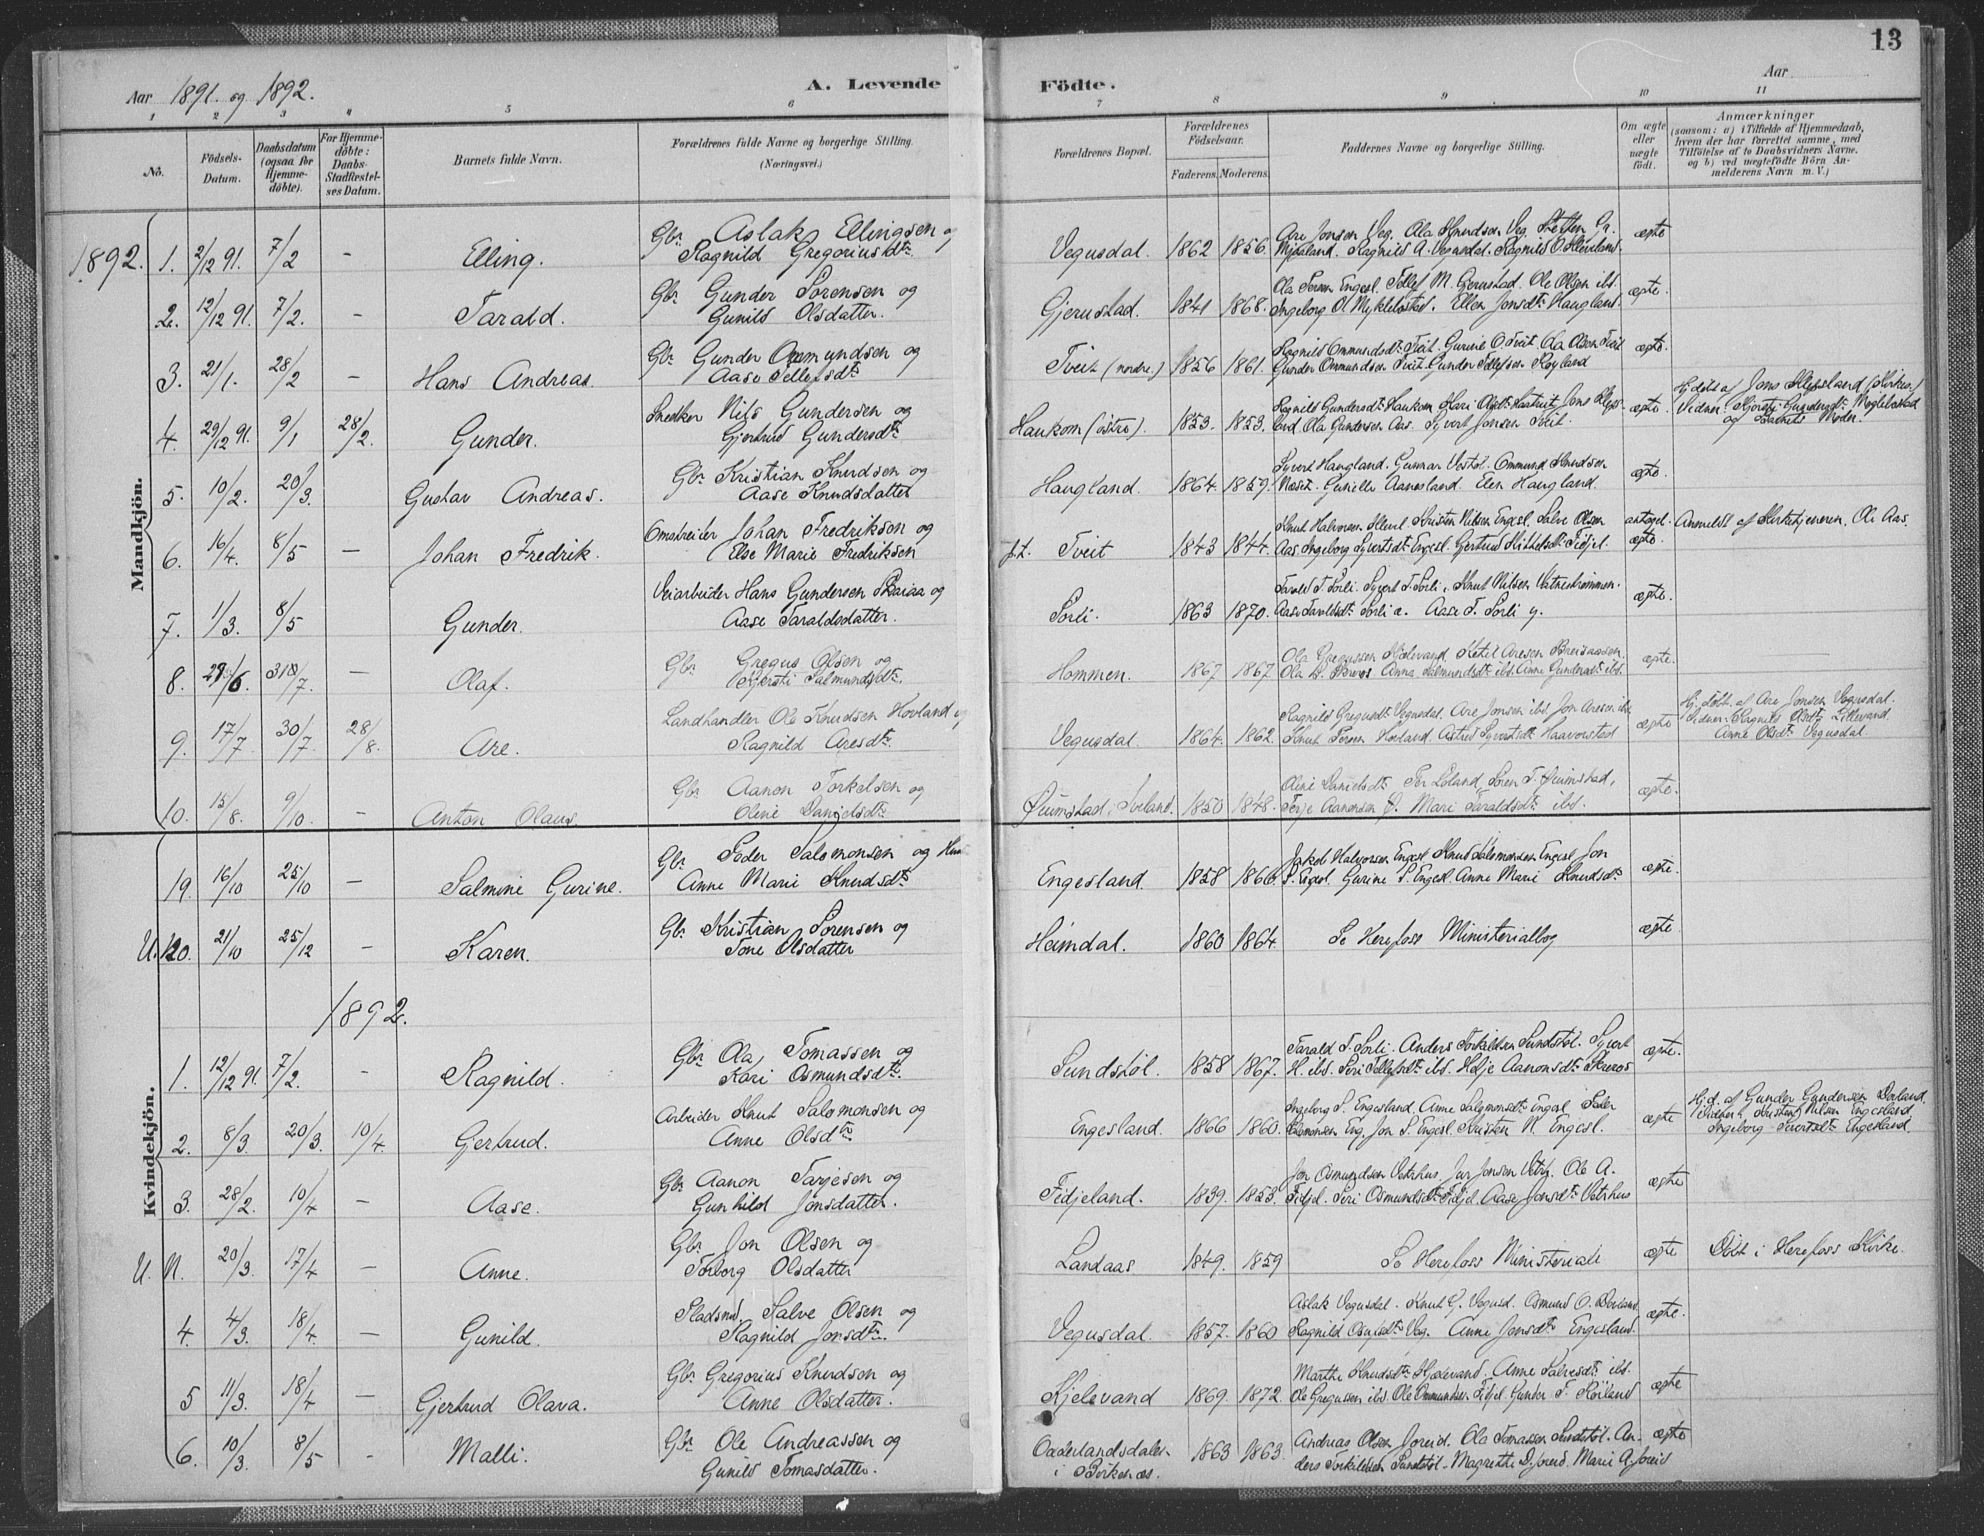 13
Aar 1891. og 1892.
A. Levende Födte.
Aar
1 2 3 4 5 6 7 8 9 10 11
No.
Födsels-Datum.
Daabsdatum (ogsaa for Hjemme-döbte).
For Hjemme-döbte: Daabs-Stadfæstel-ses Datum.
Barnets fulde Navn.
Forældrenes fulde Navne og borgerlige Stilling. (Næringsvei.)
Forældrenes Bopæl.
Forældrenes Födselsaar.
Faderens. Moderens.
Faddernes Navne og borgerlige Stilling.
Om ægte eller uægte födt.
Anmærkninger
(saasom: a) i Tilfælde af Hjemmedaab, hvem der har forrettet samme, med Tilföielse af to Daabsvidners Navne. og b) ved uægtefödte Börn An-melderens Navn m. V.)
Mandkjön.
1892. 1. 2/12 91. 7/2 - Elling. Gbr. Aslak Ellingsen og Ragnild Gregoriusdtr. Vegusdal. 1862 1856. Are Jonsen Veg. Ola Knudsen Veg. Steffen Gr. Mjaaland. Ragnild A. Vegusdal. Ragnild O. ægte
2. 12/12 91. 7/2. - Tarald. Gbr. Gunder Sørensen og Gunild Olsdatter. Gjerustad. 1841 1868. Ola Engesl. Tellef M. Gjerustad. Ole Olsen ibd. Ingeborg O. Myklebostad. Ellen Jonsdtr. Haugland. ægte.
3. 21/1. 28/2 - Hans Andreas. Gbr. Gunder Omundsen og Aase Tellefsdtr. Tveit (nordre.) 1856 1861. Ragnild Ommundsdtr. Tveit. Gurine O. Tveit. Ola Olsen Tveit Gunder Ommundsen Tveit. Gunder Tellefsen Røyland ægte.
4. 29/12 91. 9/1 28/2. Gunder. Snedker Nils Gundersen og Gjertrud Gundersdtr. Haukom (østre). 1853. 1853. Ragnild Gundersdtr. Haukom. Kari Olsdtr. Jens Ola Gundersen Aas. Syvert Jonsen Tveit. ægte. Hj. døbt af Jens Vidner: Kjersti Gundersdtr. og Barnets Moder.
5. 10/2. 20/3. Gustav Andreas. Gbr. Kristian Knudsen og Aase Knudsdatter Haugland. 1864. 1859. Syvert Haugland. Gunnar Vestøl. Ommund Knudsen Næset. Gunille Aanesland. Elen Haugland. ægte.
6. 16/4. 8/5 - Johan Fredrik. Omstreifer Johan Fredriksen og Else Marie Fredriksen p.t. Tveit 1843 1844. Knut Halvorsen Kristen Nilsen Engesl. Salve Olsen Aas. Ingeborg Syvertsdtr. Engesl. Gertrud Fidjel. antagel. ægte. Anmeldt af Kirketjeneren, Ole Aas.
7. 1/3. 8/5 Gunder. Veiarbeider Hans Gundersen Skaiaa og Aase Taraldsdatter. Sorli. 1863 1870. Tarald T. Sorli. Syvert T. Sorli. Knut Nilsen Vatnestrømmen. Aase Taraldsdtr. Sorli æ. Aase T. Sorli y. ægte.
8. 29/6. 31/7. - Olaf. Gbr. Gregus Olsen og Kjersti Salmundsdtr. Hommen. 1867 1867 Ola Gregussen Kjelevand. Ketil Aresen Ola Anna Salmundsdtr. ibd. Anne Gundersdtr. ibd. ægte.
9. 17/7. 30/7. 28/8. Are. Landhandler Ole Knudsen Hovland og Ragnild Aresdtr. Vegusdal. 1864. 1862. Ragnild Gregusdtr. Vegusdal. Are Jonsen ibd. Jon Aresen ibd. Knut Hovland. Astrid Syvertsdtr. Haaverstad ægte Hj. døbt. af Are Jonsen Vegusdal. Vidner: Ragnild Olsdtr. Lillevand. Anne Olsdtr. Vegusdal.
10. 15/8. 9/10. - Anton Olaus. Gbr. Aanon Torkelsen og Oline Danielsdtr. Øuimstad, Iveland. 1850 1848. Oline Danielsdtr. Per Loland. Søren T. Øuimstad, Terje Aanonsen Ø. Mari Taraldsdtr. ibd. ægte.
19. 16/10 25/10 - Salmine Gurine. Gbr. Peder Salomonsen og Anne Marie Knudsdtr. Engesland. 1858 1866. Jakob Halvorsen Engesl. Knud Salomonsen Engesl. Jon P. Engesl. Gurine P. Engesl. Anne Marie Knudsdtr. ægte.
U. 120. 21/10 25/12 - Karen. Gbr. Kristian Sorensen og Tone Olsdatter Heimdal. 1860 1864. Se Herefoss Ministerialbog ægte.
1892.
Kvindekjön.
1. 12/12 91. 7/2. - Ragnild. Gbr. Ola Tomassen og Kari Osmundsdtr. Sundstøl. 1858 1867. Tarald T. Sorli. Anders Torkildsen Sundstøl. Syvert H. ibd. Siri Tellefsdtr. ibd. Helje Aanonsdtr. Skreros ægte.
2. 8/3. 20/3. 10/4. Gjertrud. Arbeider Knut Salomonsen og Anne Olsdtr. Engesland. 1866 1860. Ingeborg S. Engesland. Anne Salomonsdtr. Engesl. Peder Salomonsen Eng. Jon P. Engesl. Kristen N. Engesl. ægte Hj.d. af Gunder Gundersen Dovland. Vidner: Kristen Nilsen Engesland Ingeborg Sivertsdtr. Engesland.
3. 28/2. 10/4 - Aase. Gbr. Aanon Tarjesen og Gunhild Jonsdatter. Fidjeland. 1839. 1853. Jon Osmundsen Vetrhus. Jens Jonsen Vetrh. Ole A. Fidjel. Siri Osmundsdtr. Fidjel. Aase Jonsdtr. Vetrhus ægte
U. N. 20/3. 17/4 - Anne. Gbr. Jon Olsen og Torborg Olsdatter Landaas 1849. 1859 Se Herefoss Ministeriale ægte Døbt i Herefoss Kirke.
4 4/3. 18/4. - Gunild. Pladsmd. Salve Olsen og Ragnild Jonsdtr. Vegusdal. 1857. 1860 Aslak Vegusdal. Knut G. Vegusd. Osmund O. Dovland Ragnild Veg. Anne Jonsdtr. Engesland. ægte.
5 11/3. 18/4 - Gjertrud Olava. Gbr. Gregorius Knudsen og Anne Olsdatter. Kjelevand 1869. 1872. Marthe Knudsdtr. Kjelevand. Anne Salvesdtr. ibd. Ole Gregussen ibd. Ole Ommundsen Fidjel. Gunder T. Røiland ægte
6. 10/3. 8/5 - Malli. Gbr. Ole Andreassen og Gunild Tomasdatter. Oddersland­sdalen i Birkenes. 1863 1863. Andreas Olsen Joreid. Ola Tomassen Sundstøl. An-ders Torkildsen Sundstøl. Magrethe D. Joreid. Marie A. Joreid ægte